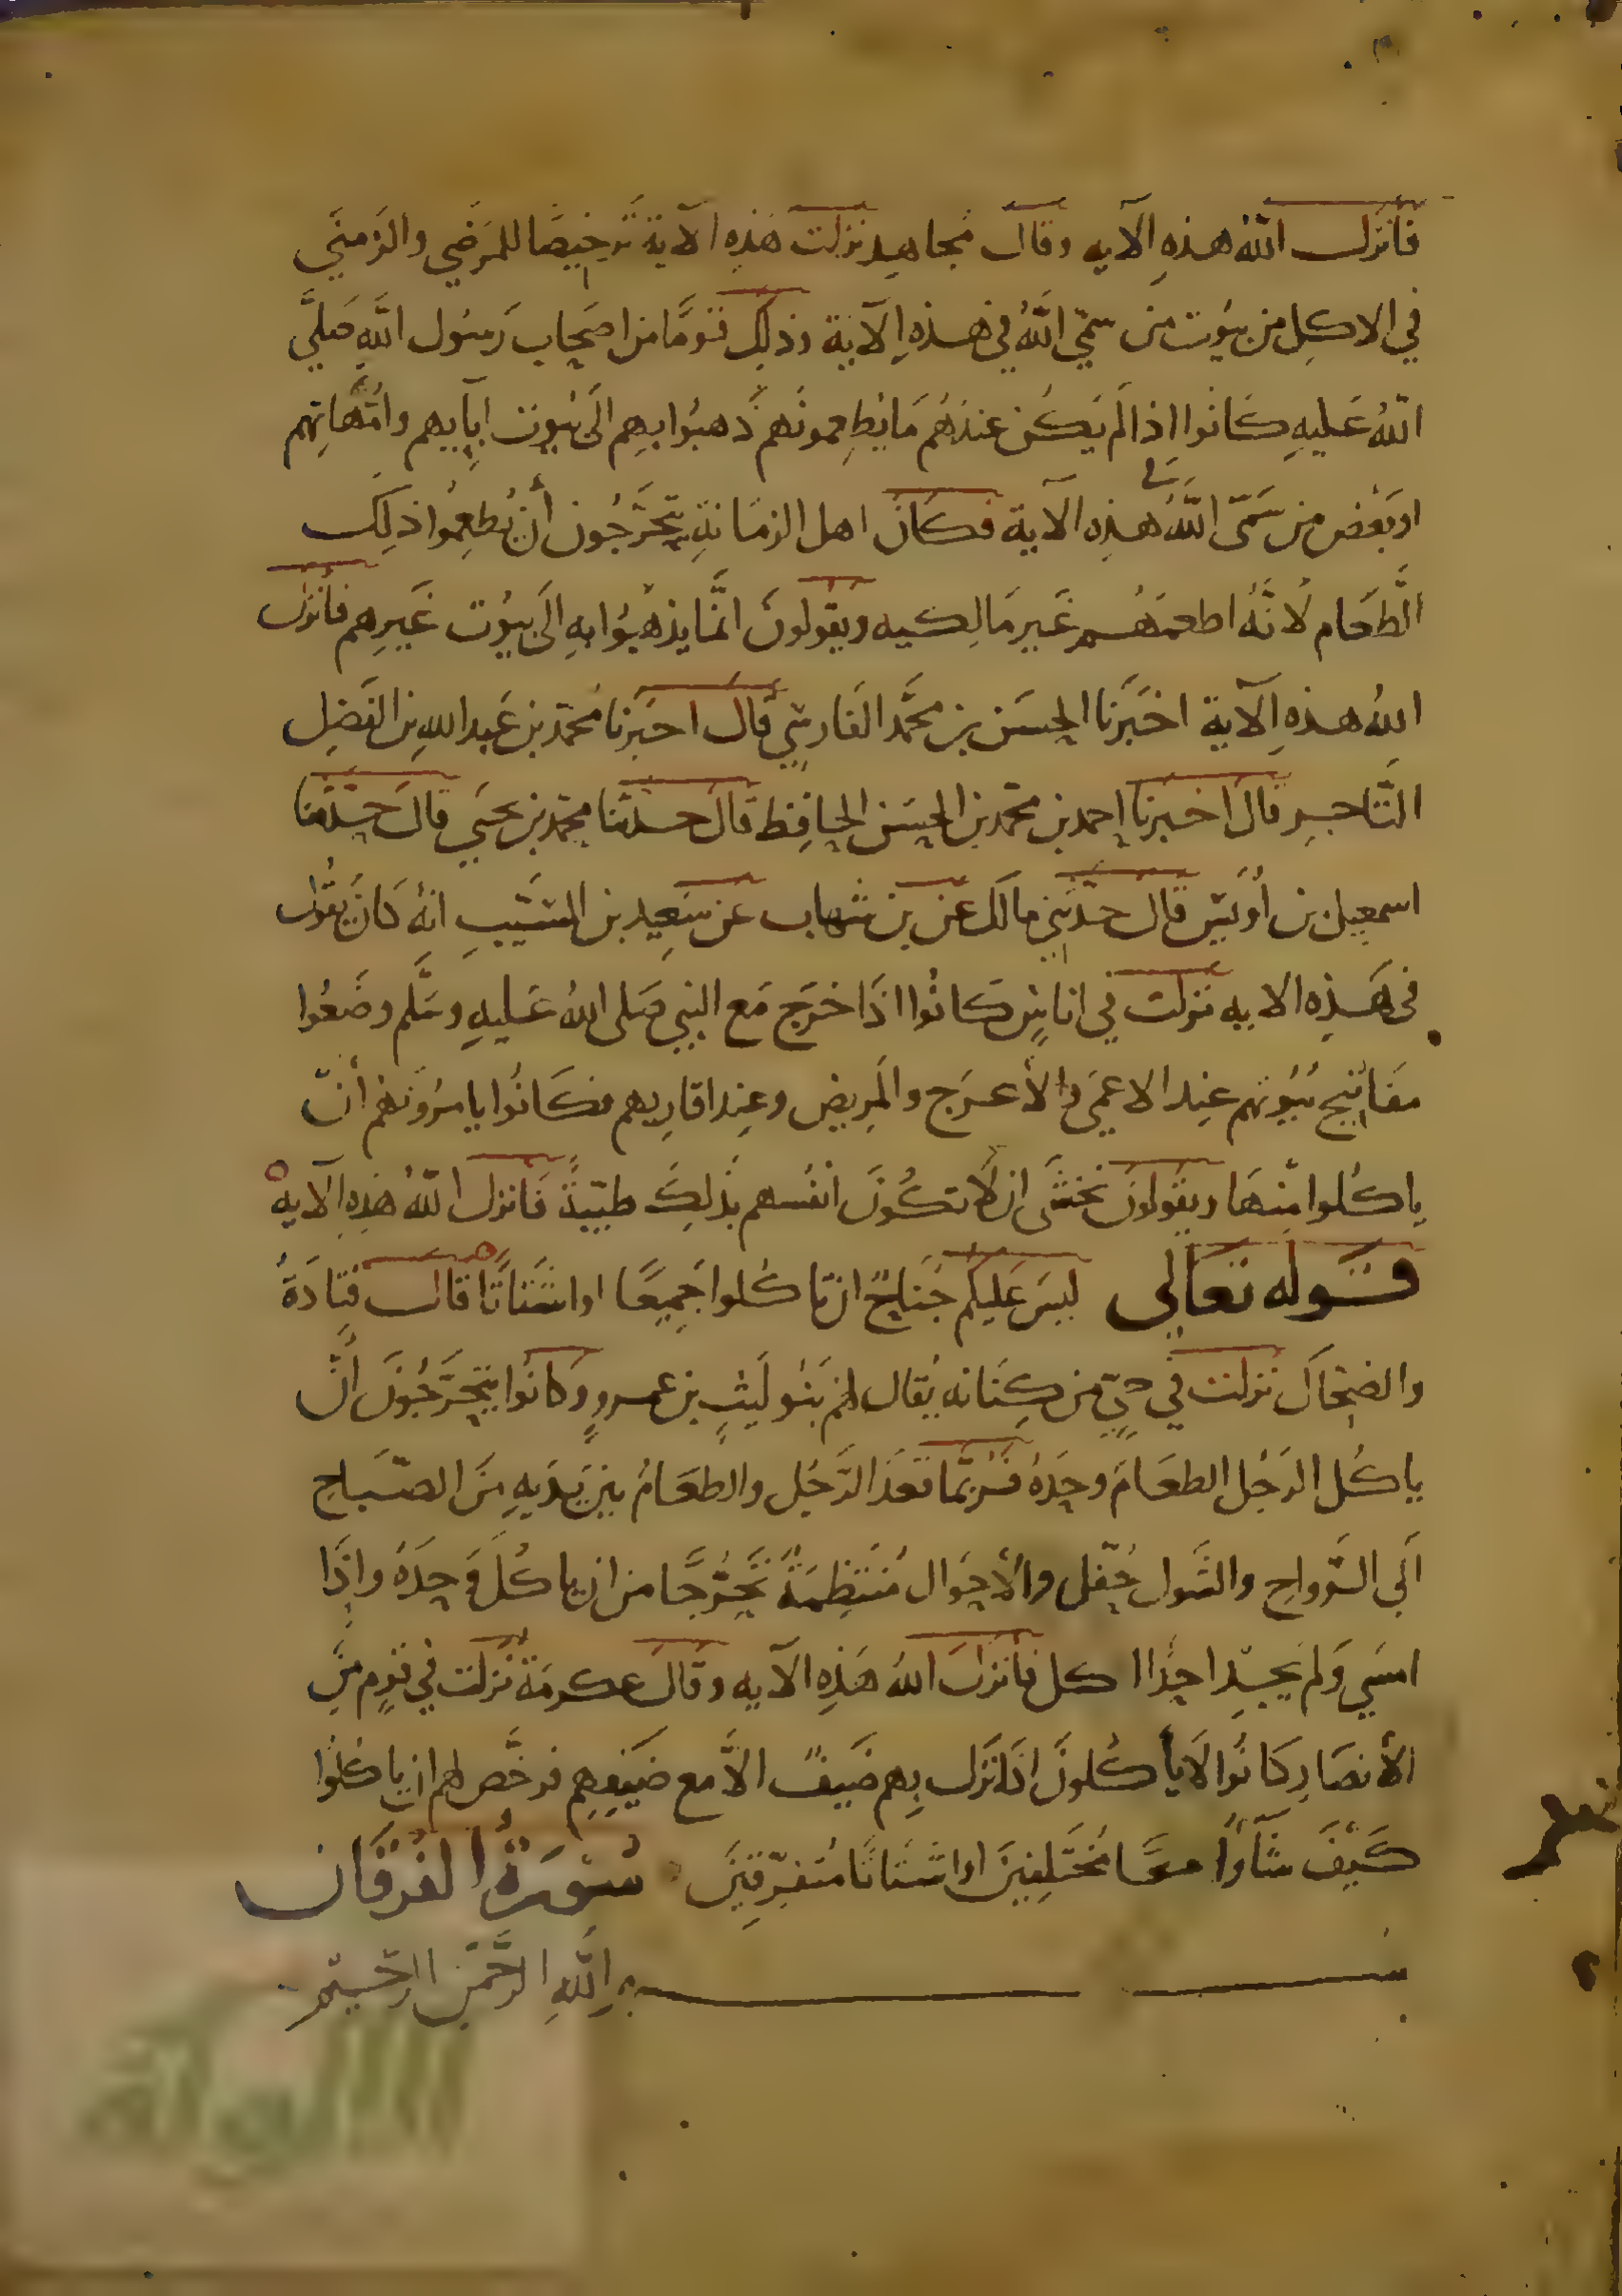 فانزل اللهُ هذهِ الآيه وقال مجاهد نزلت هذه الآية ترخيصًا للمرَضي والزمنَي
في الاكلِ من بيُوت من سمّي اللَّهُ في هذهِ الآية وذلِك قومًا من اصحَاب رَسُول اللَّهِ صَلَّي
اللهُ عَليهِ كَانُوا اذا لَم يَكُن عندَهُم مَا يُطِعمونَهم ذَهبُوا بهِم الَى بُيُوت اِبَايهم وامُّهاتِهم
او بَعْضِ من سَمّى اللَّهُ في هذِه الآية فكان اهل الزمَانةِ يتحَرَّجُون أن يُطعِمُوا ذلِكَ
الَّطعَام لانَّهُ اطعمَهُم غَير مَالِكيه ويقولونَ انَّما يذهَبُوا بهِ الَى بيُوت غَيرِهم فأنزل
اللهُ هذهِ الآية اخبَرنَا الحسَن بن محمَّد الفَارسِي قال اخبَرنَا محمّد بن عَبد اللهِ بن الفَضِل
التَّاجرِ قال اخبرنَا احمد بن محمّد بن الحسَن الحافِظ قال حدثنا محمّد بن يحيَي قالَ حدّثنا
اسمعِيل بن أُوَيس قال حدّثَنِي مالك عن بن شهاب عَن سَعِيد بن المسَيّبِ انهُ كانَ يَقُول
فى هَذِه الايه نزلت في اناسٍ كَانُوا اذَا خرَج مَع النبي صَلى اللهُ عَليهِ وسَلَّم وضَعُوا
مفَاتيح بُيُوتهم عِند الاعمَي والأعرَج والمَرِيض وعِند اقارِبهم فكَانُوا يامرُونَهم أنْ
ياكُلوا مِنّهَا ويقولونَ نخشَى ان لا تكُونَ انفُسهم بذَلِكَ طيّبَةً فَانزل اللهُ هَذِهِ الآيه
قوله تعالى ليسَ عَليكم جُنَاحٌ ان تاكُلوا جَمِيعًا او اشتَاتًا قال قتادَةُ
والضحَاك نزلت في حيّ من كِنَانه يُقال لهم بَنُو ليثِ بن عمروٍ وكانُوا يتحَرَّجُونَ أنْ
ياكُل الرجُل الطعَامَ وحدَهُ فرُبّما قعَدَ الرَّجُل والطعَامُ بينَ يَديهِ مِنَ الصّبَاحِ
الَي الرَّواحِ والشول حُفّل والأحوَال مُنتظِمَةُ تحَرُّجًا من ان ياكُلَ وَحدَهُ واذَا
امسَي وَلم يجِد احدًا اكل فأنزلَ اللهُ هَذِهِ الآيه وقالَ عكرمَة نُزلت في قومٍ منَ
الأنصَارِ كَانُوا لَا يأكُلونَ اذَا نَزل بِهم ضَيفٌ الاَّ مع ضيَفِهِم فرخَّص لهم ان ياكلوُا
كَيفَ شآءُوا معًا مُختَلِفينَ او اشتَاتًا مُتفرّقِينَ سُورَةُ الفُرقان
بسم اللهِ الرَّحمنِ الرحيم
تعر